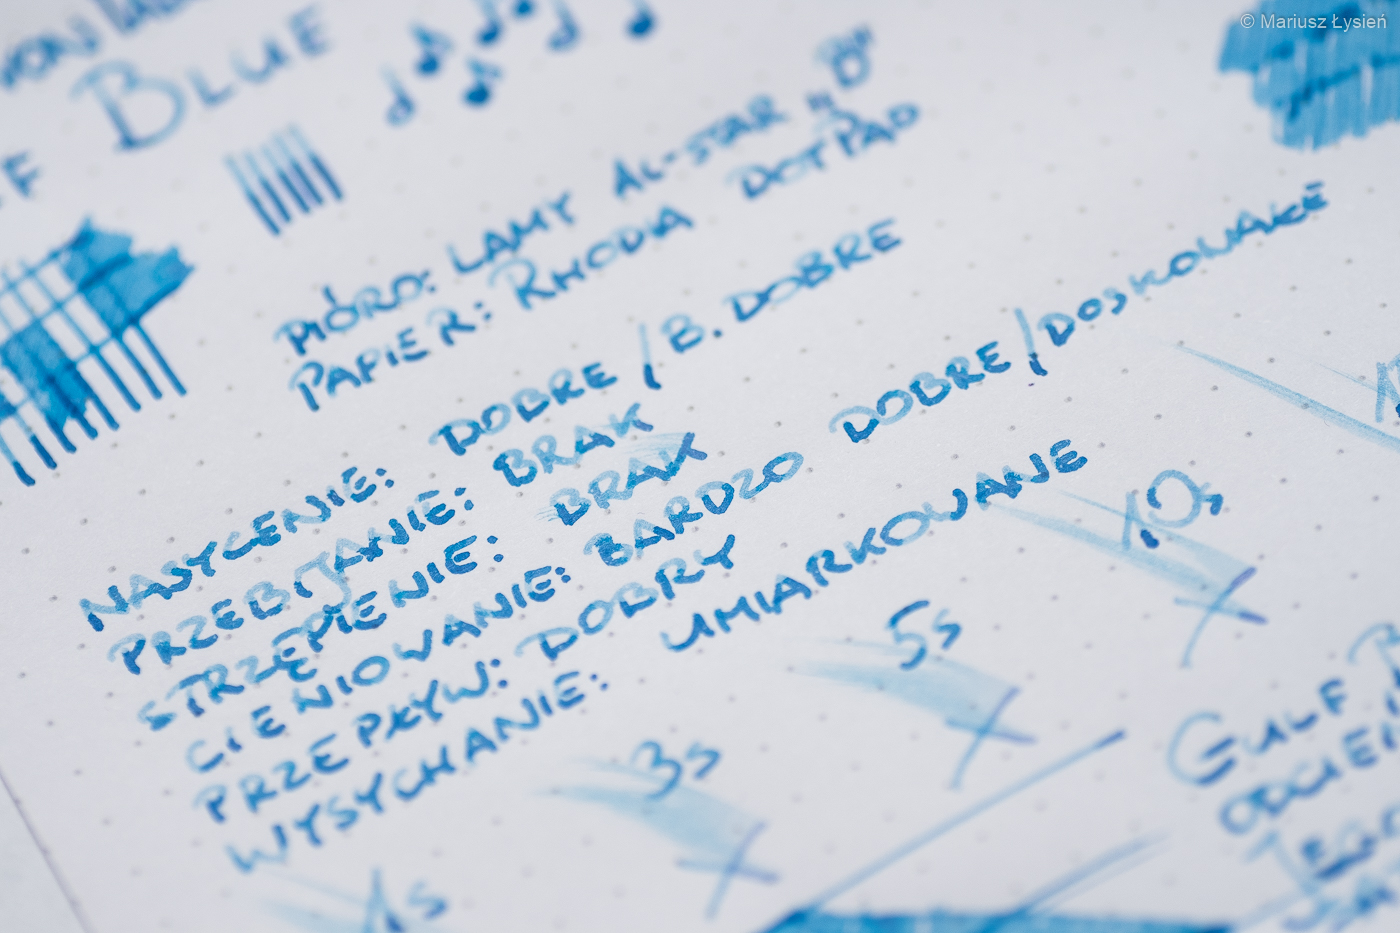 © Mariusz Łysień
BLUE
PIÓRO: LAMY AL-STAR „B”
PAPIER: RHODIA DOTPAD
NASYCENIE: DOBRE / B. DOBRE
PRZEBIJANIE: BRAK
STRZĘPIENIE: BRAK
CIENIOWANIE: BARDZO DOBRE / DOSKONAŁE
PRZEPŁYW: DOBRY
WYSYCHANIE: UMIARKOWANE
1s
3s
5s
10s
GULF